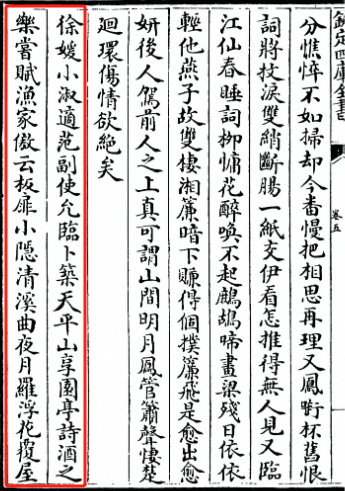 欽定四庫全書
卷五
分憔悴不如掃却今番慢把相思再理又鳳䘖杯舊恨
詞將扠淚雙綃斷腸一紙交伊看怎推得無人見又臨
江仙春睡詞栁慵花醉喚不起鷓鴣啼畫梁殘日依依
輕他燕子故雙棲湘簾暗下賺得個撲簾飛是愈出愈
妍後人駕前人之上真可謂山間明月鳳管簫聲悽楚
迴環傷情欲絶矣
徐媛小淑適范副使允臨卜築天平山享園亭詩酒之
樂嘗賦漁家傲云板扉小隱清溪曲夜月羅浮花覆屋